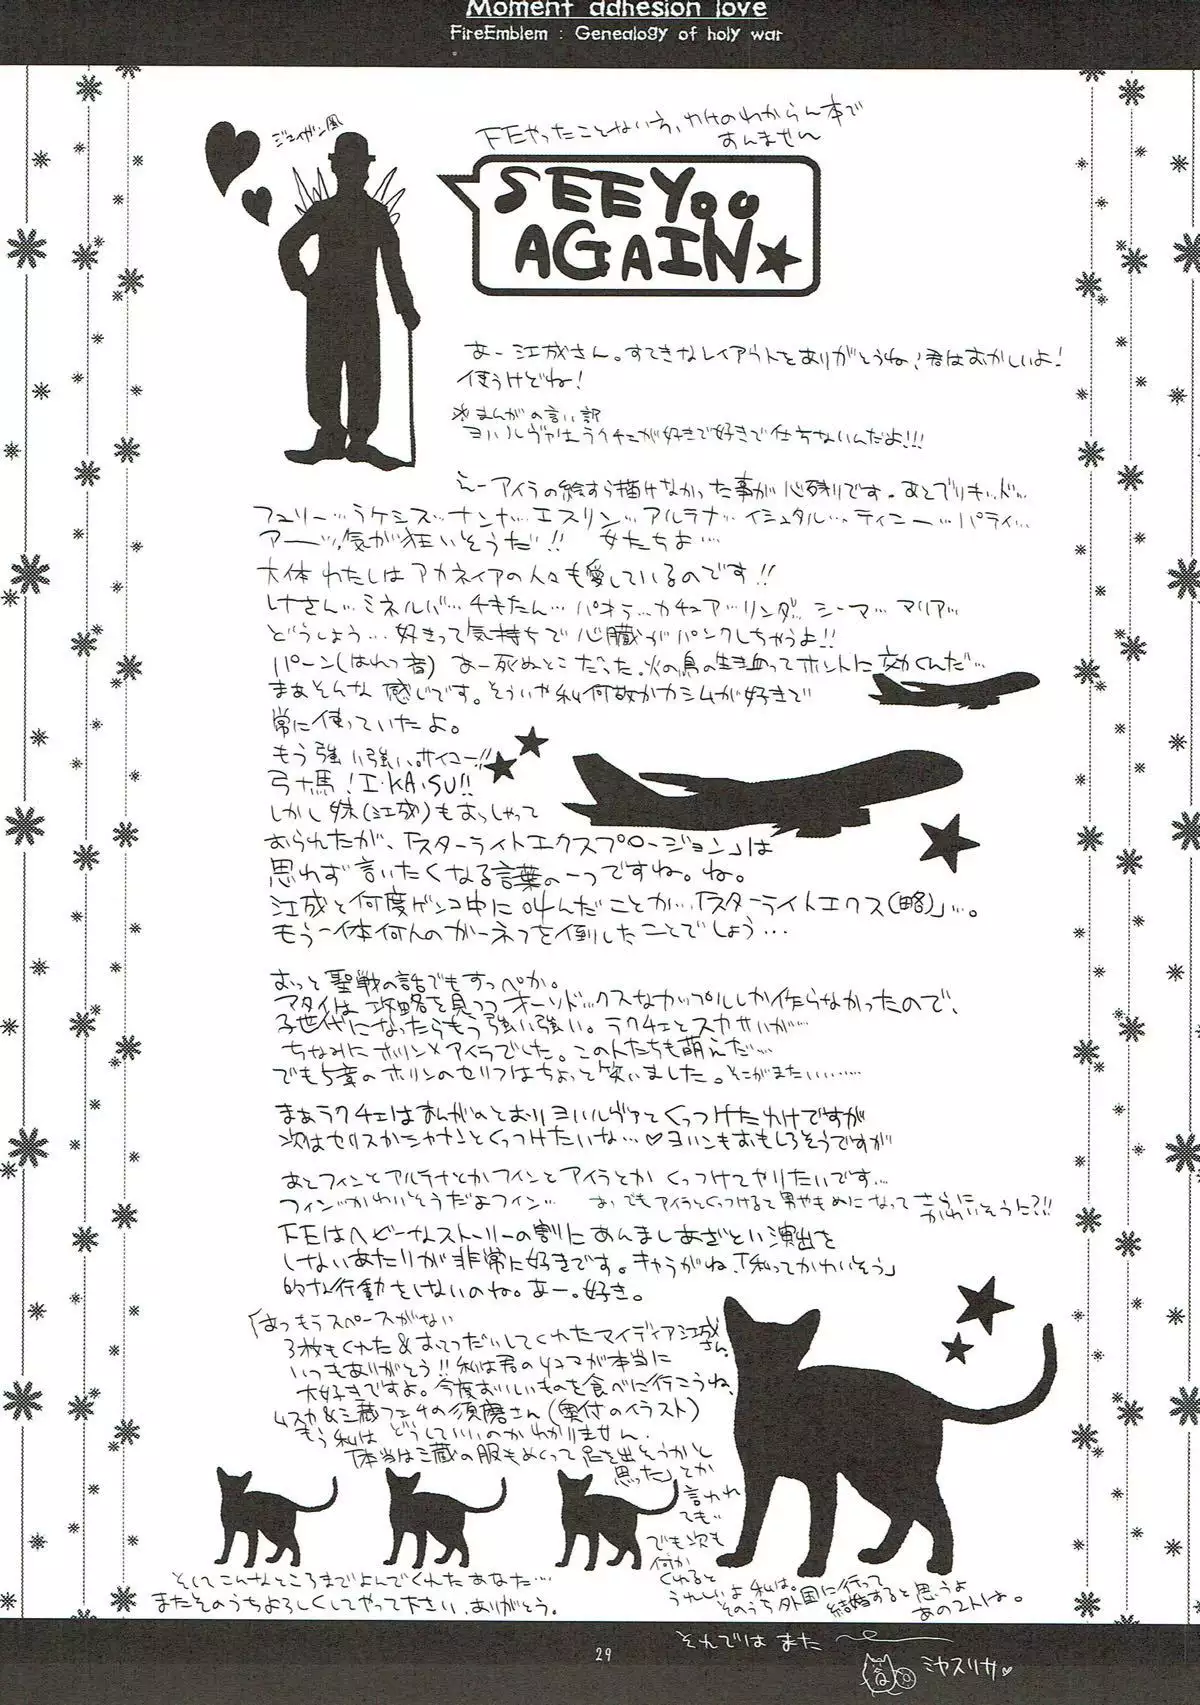 Moment adhesion love
FireEmblem : Genealogy of holy war
ジェイガン風
FEやったことない方、わけのわからん本で
あんません
SEE YOU
AGAIN★
あー江成さん。すてきなレイアウトをありがとうね!君はおかしいよ!
使うけどね!
*まんがの言い訳
ヨハルヴァはラクチェが好きで好きで仕方ないんだよ!!!
えーアイラの絵すら描けなかった事が心残りです。あとブリギッド…
フュリー…ラケシス…ナンナ…エスリン…アルテナ…イシュタル…ティニー…パティ…
アーッ気が狂いそうだ!! 女たちよ…
大体わたしはアカネイアの人々も愛しているのです!!
レナさん…ミネルバ…チキたん…パオラ…カチュア…リンダ…シーマ…マリア…
どうしよう…好きって気持ちで心臓がパンクしちゃうよ!!
パーン(はれつ音) あー死ぬとこだった。火の鳥の生き血ってホントに効くんだ…
まあそんな感じです。そういや私何故かカシムが好きで
常に使っていたよ。
もう強い強い。サイコー!!
弓+馬!I・KA・SU!!
しかし妹(江成)もおっしゃって
おられたが、「スターライトエクスプロージョン」は
思わず言いたくなる言葉の一つですね。ね。
江成と何度ゲンコ中に叫んだことか…「スターライトエクス(略)」…。
もう一体何人のガーネフを倒したことでしょう…
おっと聖戦の話でもすっぺか。
アタイは攻略を見つつオーソドックスなカップルしか作らなかったので、
子世代になったらもう強い強い。ラクチェとスカサハが…
ちなみにホリン×アイラでした。この人たちも萌えだ…
でも5章のホリンのセリフはちょっと笑いました。そこがまたいい……
まぁラクチェはまんがのとおりヨハルヴァとくっつけたわけですが
次はセリスかシャナンとくっつけたいな…♡ヨハンもおもしろそうですが
あとフィンとアルテナとかフィンとアイラとかくっつけてやりたいです…
フィン…かわいそうだよフィン… あ、でもアイラとくっつけると男やもめになってさらに
かわいそうに?!!
FEはヘビーなストーリーの割にあんましあざとい演出を
しないあたりが非常に好きです。キャラがね、「私ってかわいそう」
的な行動をしないのね。あー。好き。
「はっもうスペースがない
3枚もくれた&おてつだいしてくれたマイディア江成
さん。
いつもありがとう!!私は君の4コマが本当に
大好きですよ。今度おいしいものを食べに行こうね。
ムスカ&三蔵フェチの須磨さん(奥付のイラスト)
もう私はどうしていいのかわかりません。
「本当は三蔵の服もめくって足を出そうかと
思った」とか
言われ
ても…
でも次も
何か
くれると
うれしいよ私は。
そのうち外国に行って
結婚すると思うよ
あの2人は。
そしてこんなところまでよんでくれたあなた…
またそのうちよろしくしてやって下さい。ありがとう。
それではまた
ミヤスリサ♡
29